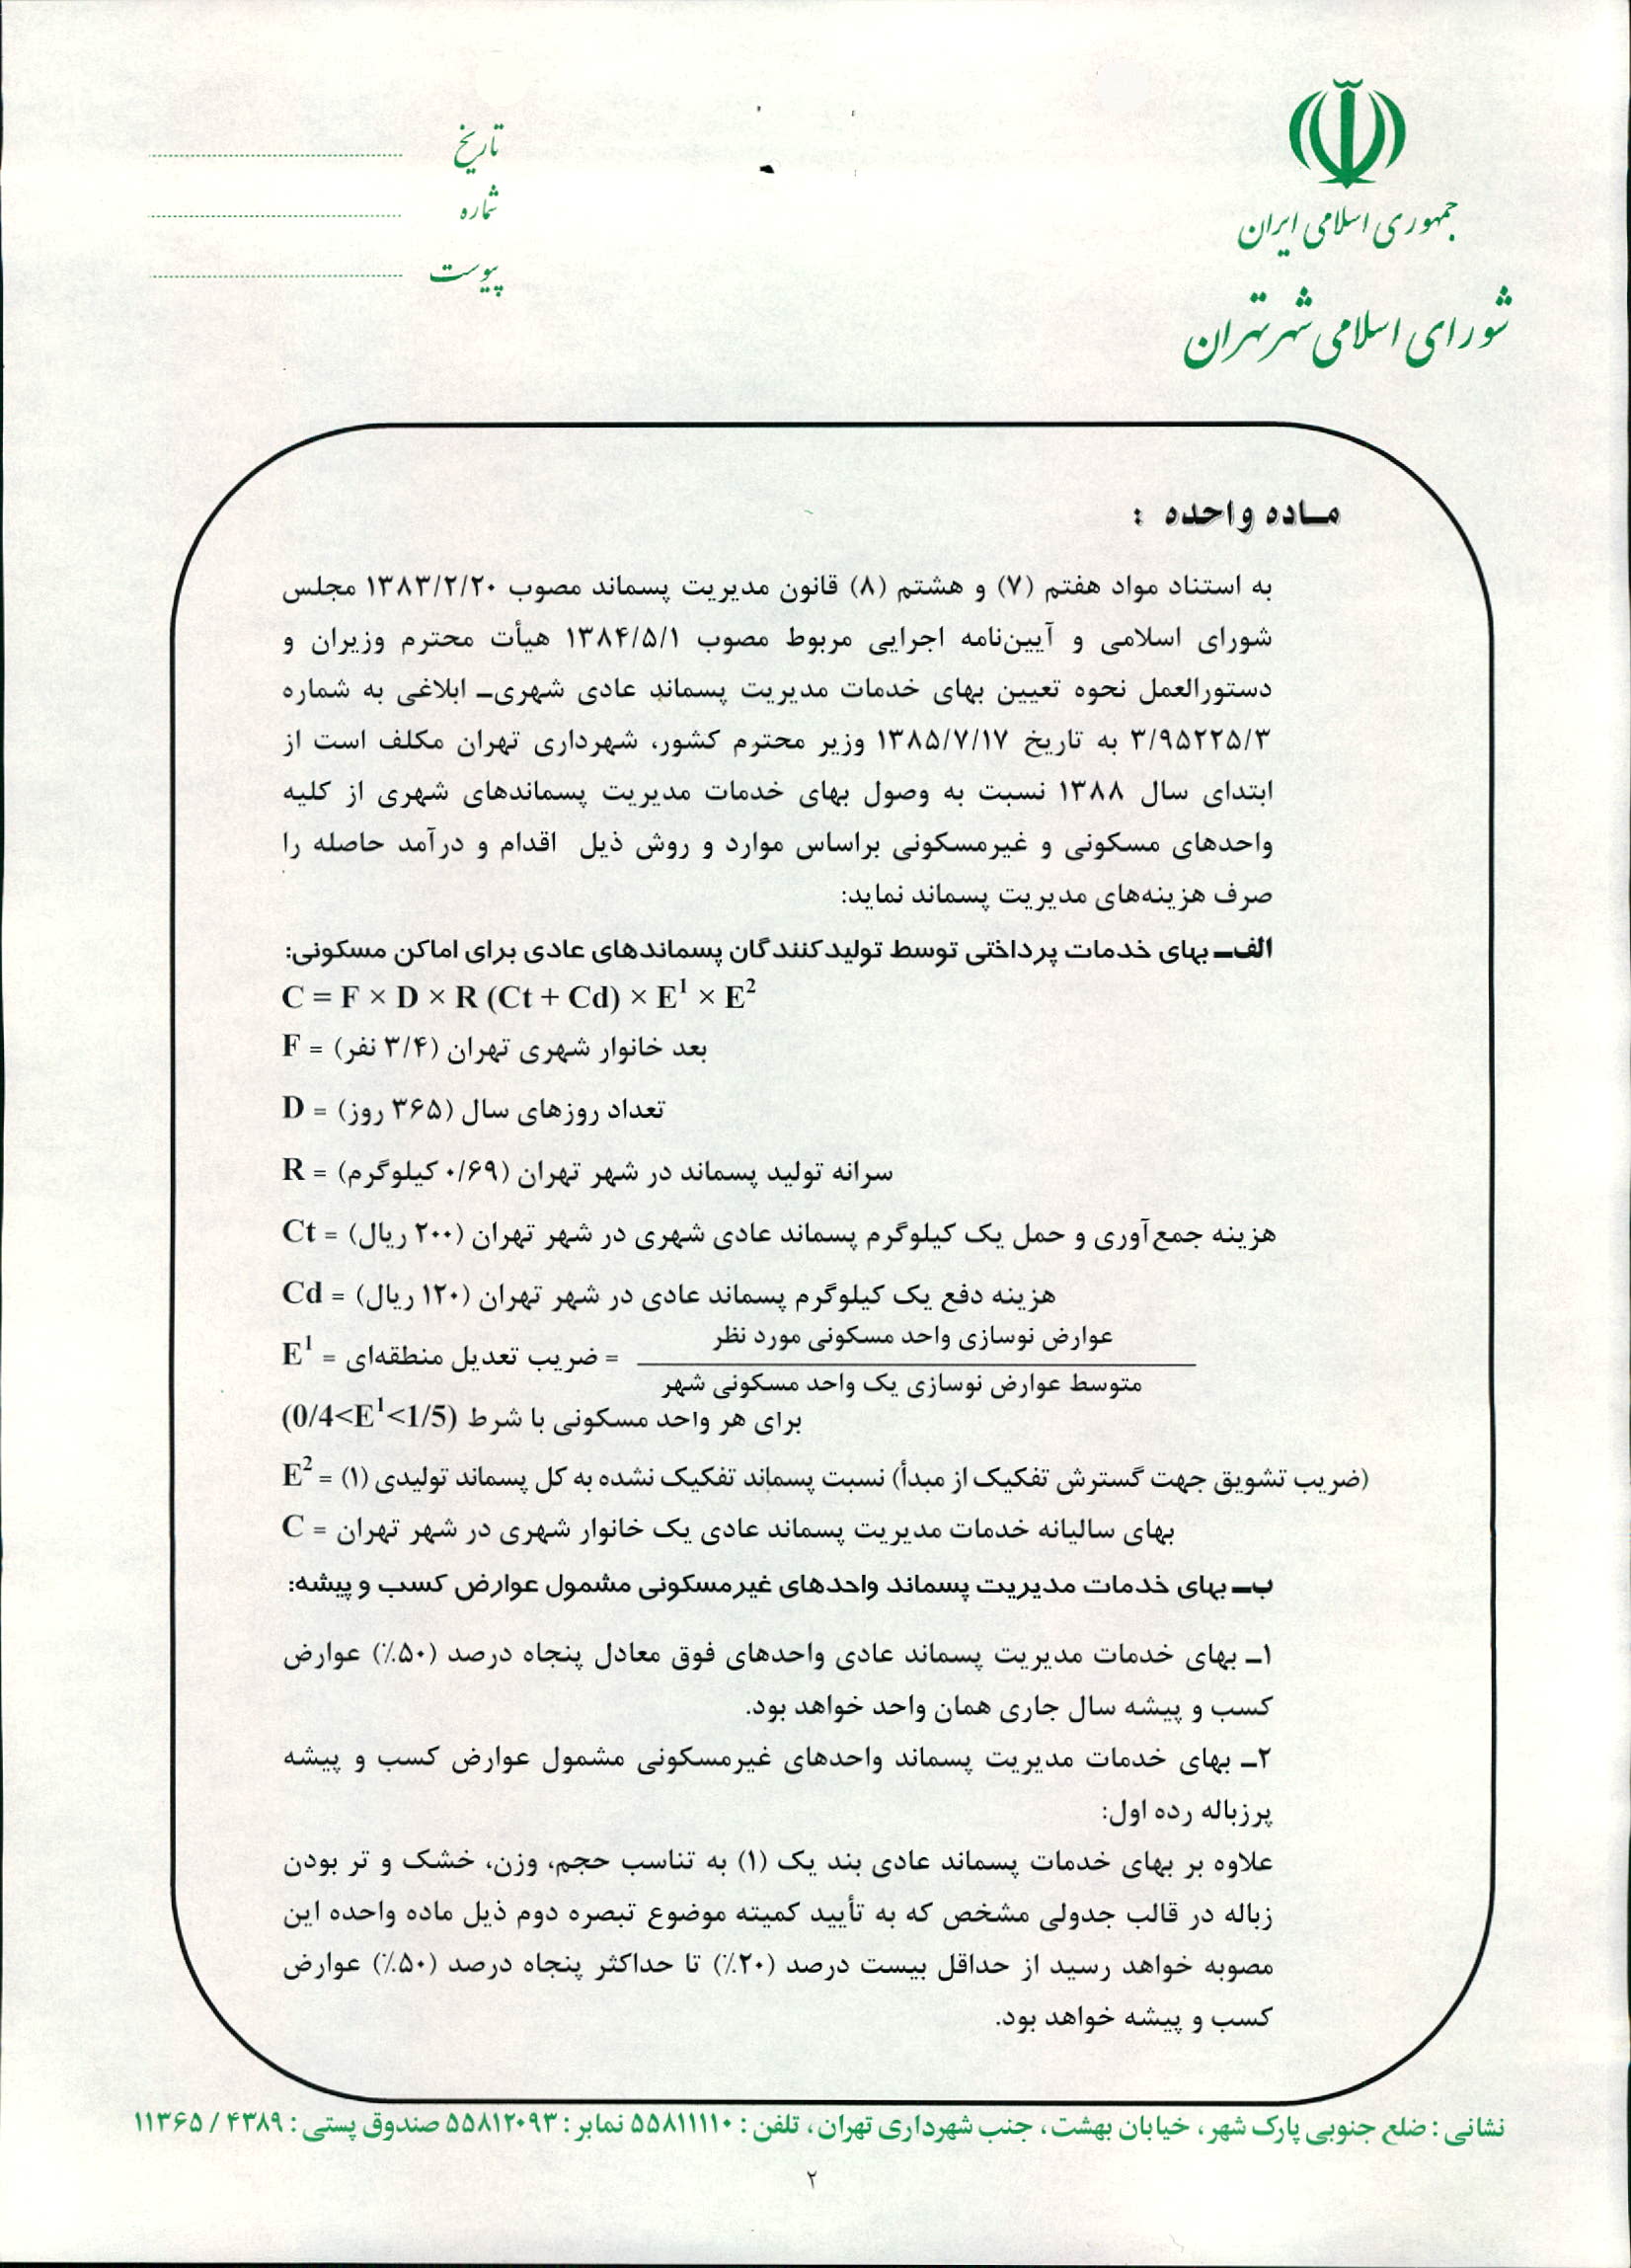 جمهوری اسلامی ایران
شورای اسلامی شهر تهران
تاریخ
شماره
پیوست
مـاده واحده :
به استناد مواد هفتم (۷) و هشتم (۸) قانون مدیریت پسماند مصوب ۱۳۸۳/۲/۲۰ مجلس
شورای اسلامی و آیین‌نامه اجرایی مربوط مصوب ۱۳۸۴/۵/۱ هیأت محترم وزیران و
دستورالعمل نحوه تعیین بهای خدمات مدیریت پسماند عادی شهری_ ابلاغی به شماره
۳/۹۵۲۲۵/۳ به تاریخ ۱۳۸۵/۷/۱۷ وزیر محترم کشور، شهرداری تهران مکلف است از
ابتدای سال ۱۳۸۸ نسبت به وصول بهای خدمات مدیریت پسماندهای شهری از کلیه
واحدهای مسکونی و غیرمسکونی براساس موارد و روش ذیل اقدام و درآمد حاصله را
صرف هزینه‌های مدیریت پسماند نماید:
الف_ بهای خدمات پرداختی توسط تولیدکنندگان پسماندهای عادی برای اماکن مسکونی:
C = F × D × R (Ct + Cd) × E¹ × E²
F = بعد خانوار شهری تهران (۳/۴ نفر)
D = تعداد روزهای سال (۳۶۵ روز)
R = سرانه تولید پسماند در شهر تهران (۰/۶۹ کیلوگرم)
Ct = هزینه جمع‌آوری و حمل یک کیلوگرم پسماند عادی شهری در شهر تهران (۲۰۰ ریال)
Cd = هزینه دفع یک کیلوگرم پسماند عادی در شهر تهران (۱۲۰ ریال)
عوارض نوسازی واحد مسکونی مورد نظر
E¹ = ضریب تعدیل منطقه‌ای =
متوسط عوارض نوسازی یک واحد مسکونی شهر
برای هر واحد مسکونی با شرط (0/4<E¹<1/5)
E² = (۱) نسبت پسماند تفکیک نشده به کل پسماند تولیدی (ضریب تشویق جهت گسترش تفکیک از مبدأ)
C = بهای سالیانه خدمات مدیریت پسماند عادی یک خانوار شهری در شهر تهران
ب_ بهای خدمات مدیریت پسماند واحدهای غیرمسکونی مشمول عوارض کسب و پیشه:
۱_ بهای خدمات مدیریت پسماند عادی واحدهای فوق معادل پنجاه درصد (۵۰٪) عوارض
کسب و پیشه سال جاری همان واحد خواهد بود.
۲_ بهای خدمات مدیریت پسماند واحدهای غیرمسکونی مشمول عوارض کسب و پیشه
پرزباله رده اول:
علاوه بر بهای خدمات پسماند عادی بند یک (۱) به تناسب حجم، وزن، خشک و تر بودن
زباله در قالب جدولی مشخص که به تأیید کمیته موضوع تبصره دوم ذیل ماده واحده این
مصوبه خواهد رسید از حداقل بیست درصد (۲۰٪) تا حداکثر پنجاه درصد (۵۰٪) عوارض
کسب و پیشه خواهد بود.
نشانی : ضلع جنوبی پارک شهر ، خیابان بهشت ، جنب شهرداری تهران ، تلفن : ۵۵۸۱۱۱۱۰ نمابر : ۵۵۸۱۲۰۹۳ صندوق پستی : ۴۳۸۹ / ۱۱۳۶۵
۲